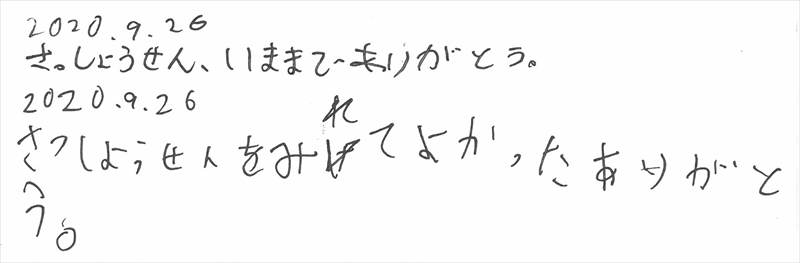 2020.9.26
さっしょうせん、いままでありがとう。
2020.9.26
さっしょうせんをみれてよかったありがと
う。